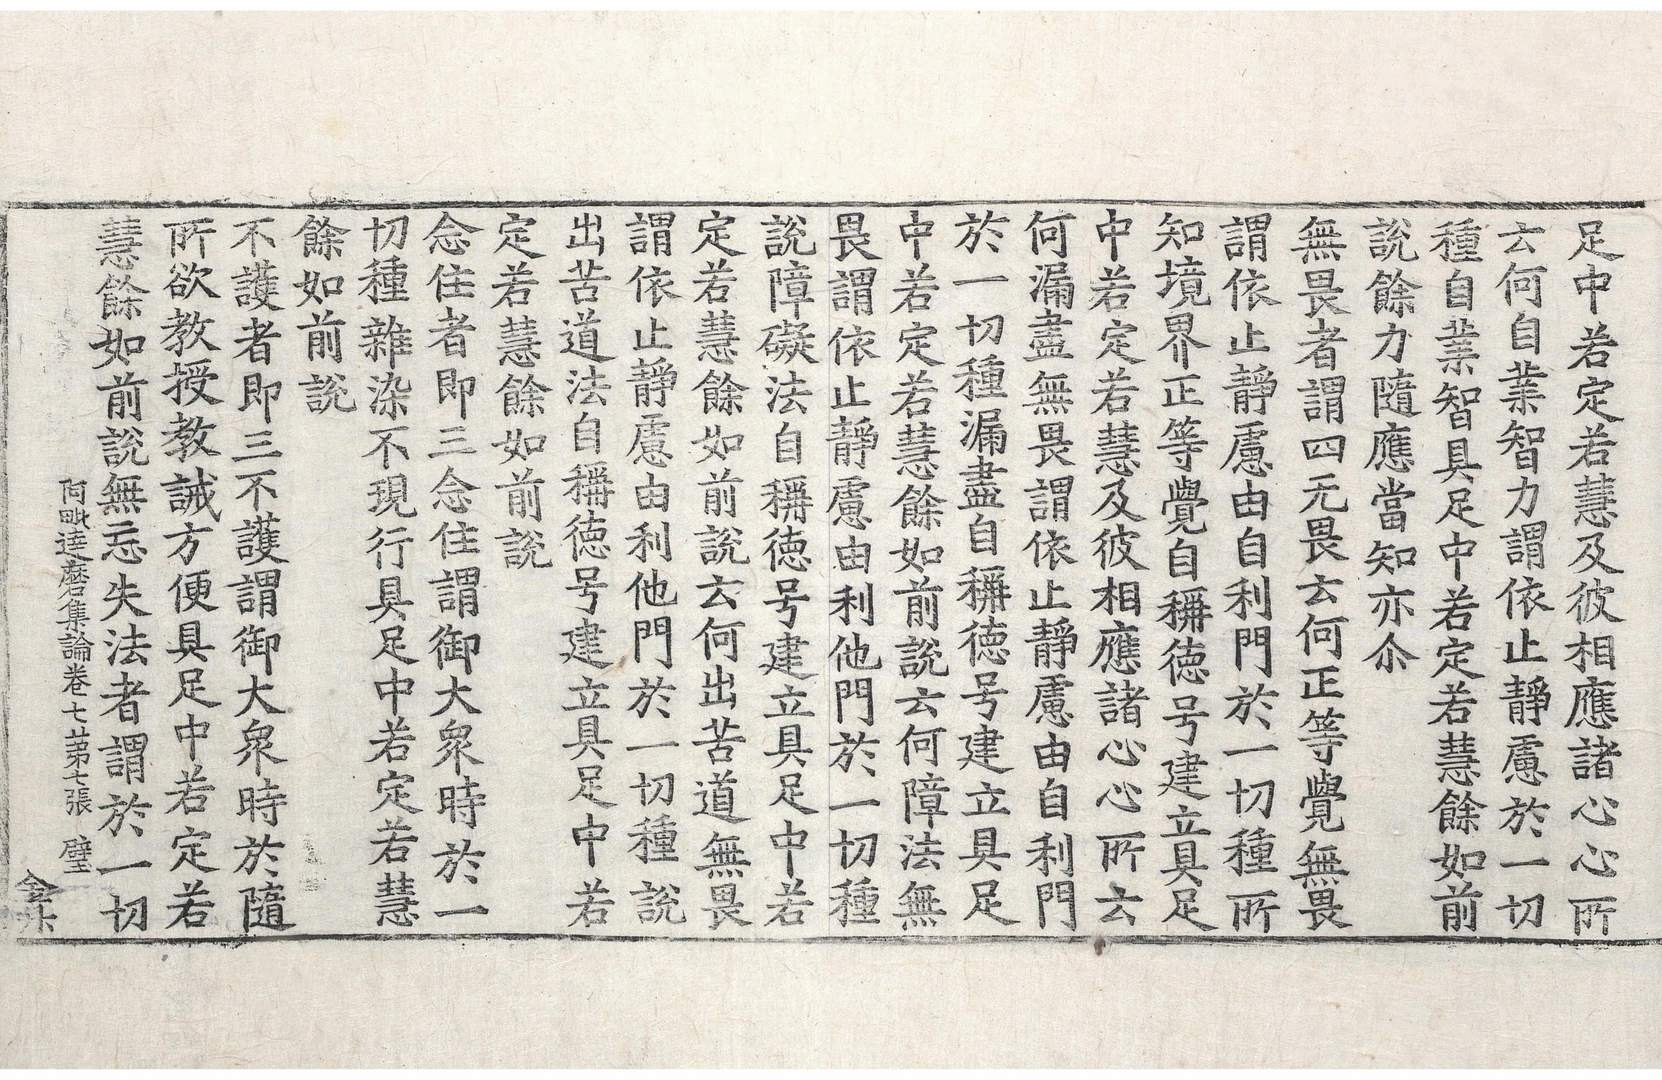 足中若定若慧及彼相應諸心心所
云何自業智力謂依止靜慮於一切
種自業智具足中若定若慧餘如前
說餘力隨應當知亦尒
無畏者謂四无畏云何正等覺無畏
謂依止靜慮由自利門於一切種所
知境界正等覺自稱德号建立具足
中若定若慧及彼相應諸心心所云
何漏盡無畏謂依止靜慮由自利門
於一切種漏盡自稱德号建立具足
中若定若慧餘如前說云何障法無
畏謂依止靜慮由利他門於一切種
說障礙法自稱德号建立具足中若
定若慧餘如前說云何出苦道無畏
謂依止靜慮由利他門於一切種說
出苦道法自稱德号建立具足中若
定若慧餘如前說
念住者即三念住謂御大衆時於一
切種雜染不現行具足中若定若慧
餘如前說
不護者即三不護謂御大衆時於隨
所欲教授教誡方便具足中若定若
慧餘如前說無忘失法者謂於一切
阿毗達磨集論卷七苐七張 璧